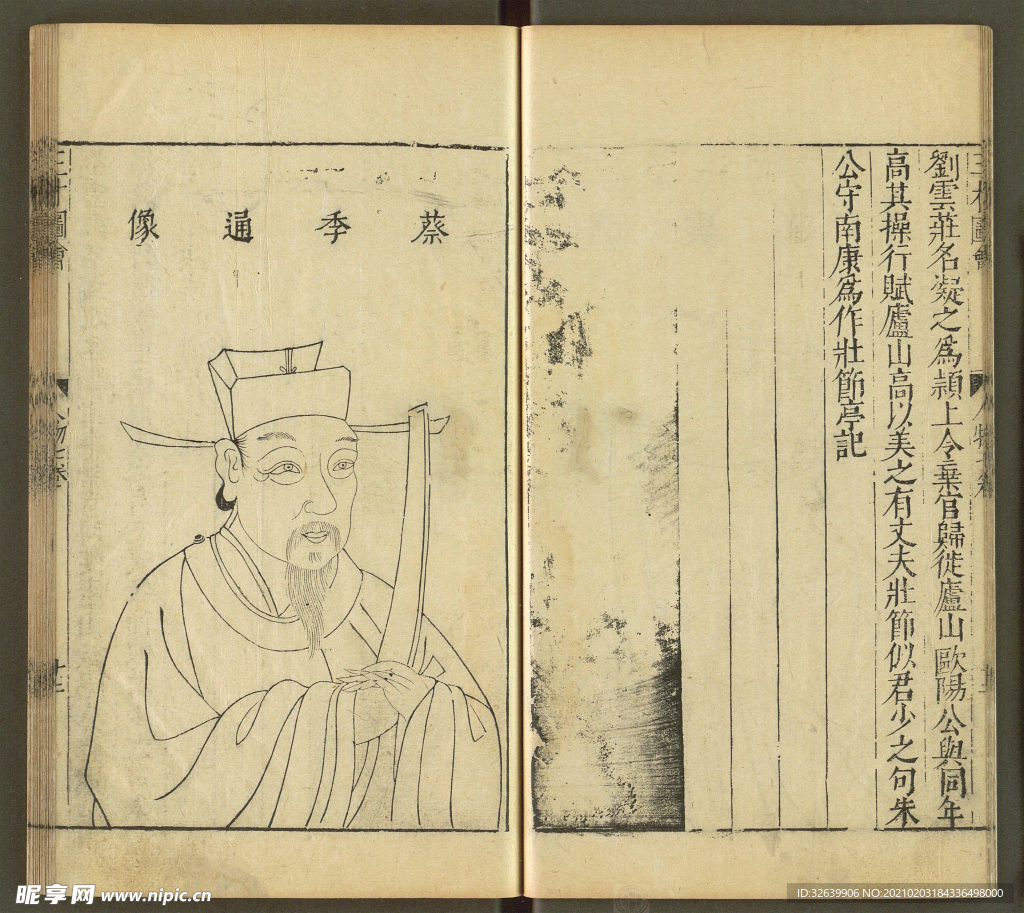 三才圖會
劉雲莊名凝之爲頴上令棄官歸徙廬山歐陽公與同年
高其操行賦廬山高以美之有丈夫壯節似君少之句朱
公守南康爲作壯節亭記
蔡季通像
三才圖會
人物七卷
昵享网 www.nipic.cn
ID:32639906 NO:20210203184336498000